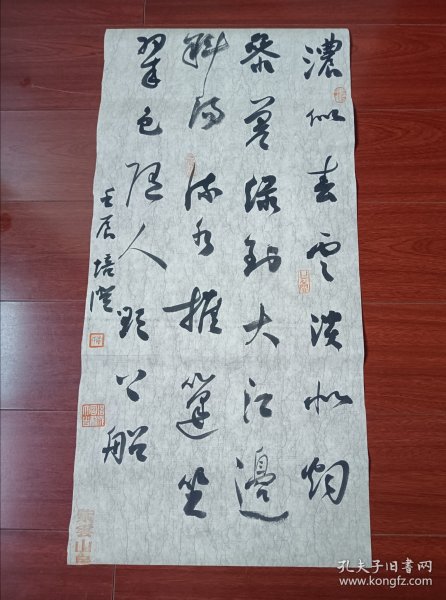 濃似春雲淡似烟
參差綠到大江邊
斜陽流水推篷坐
翠色隨人欲上船
壬辰 培
孔夫子旧书网
www.kongfz.com